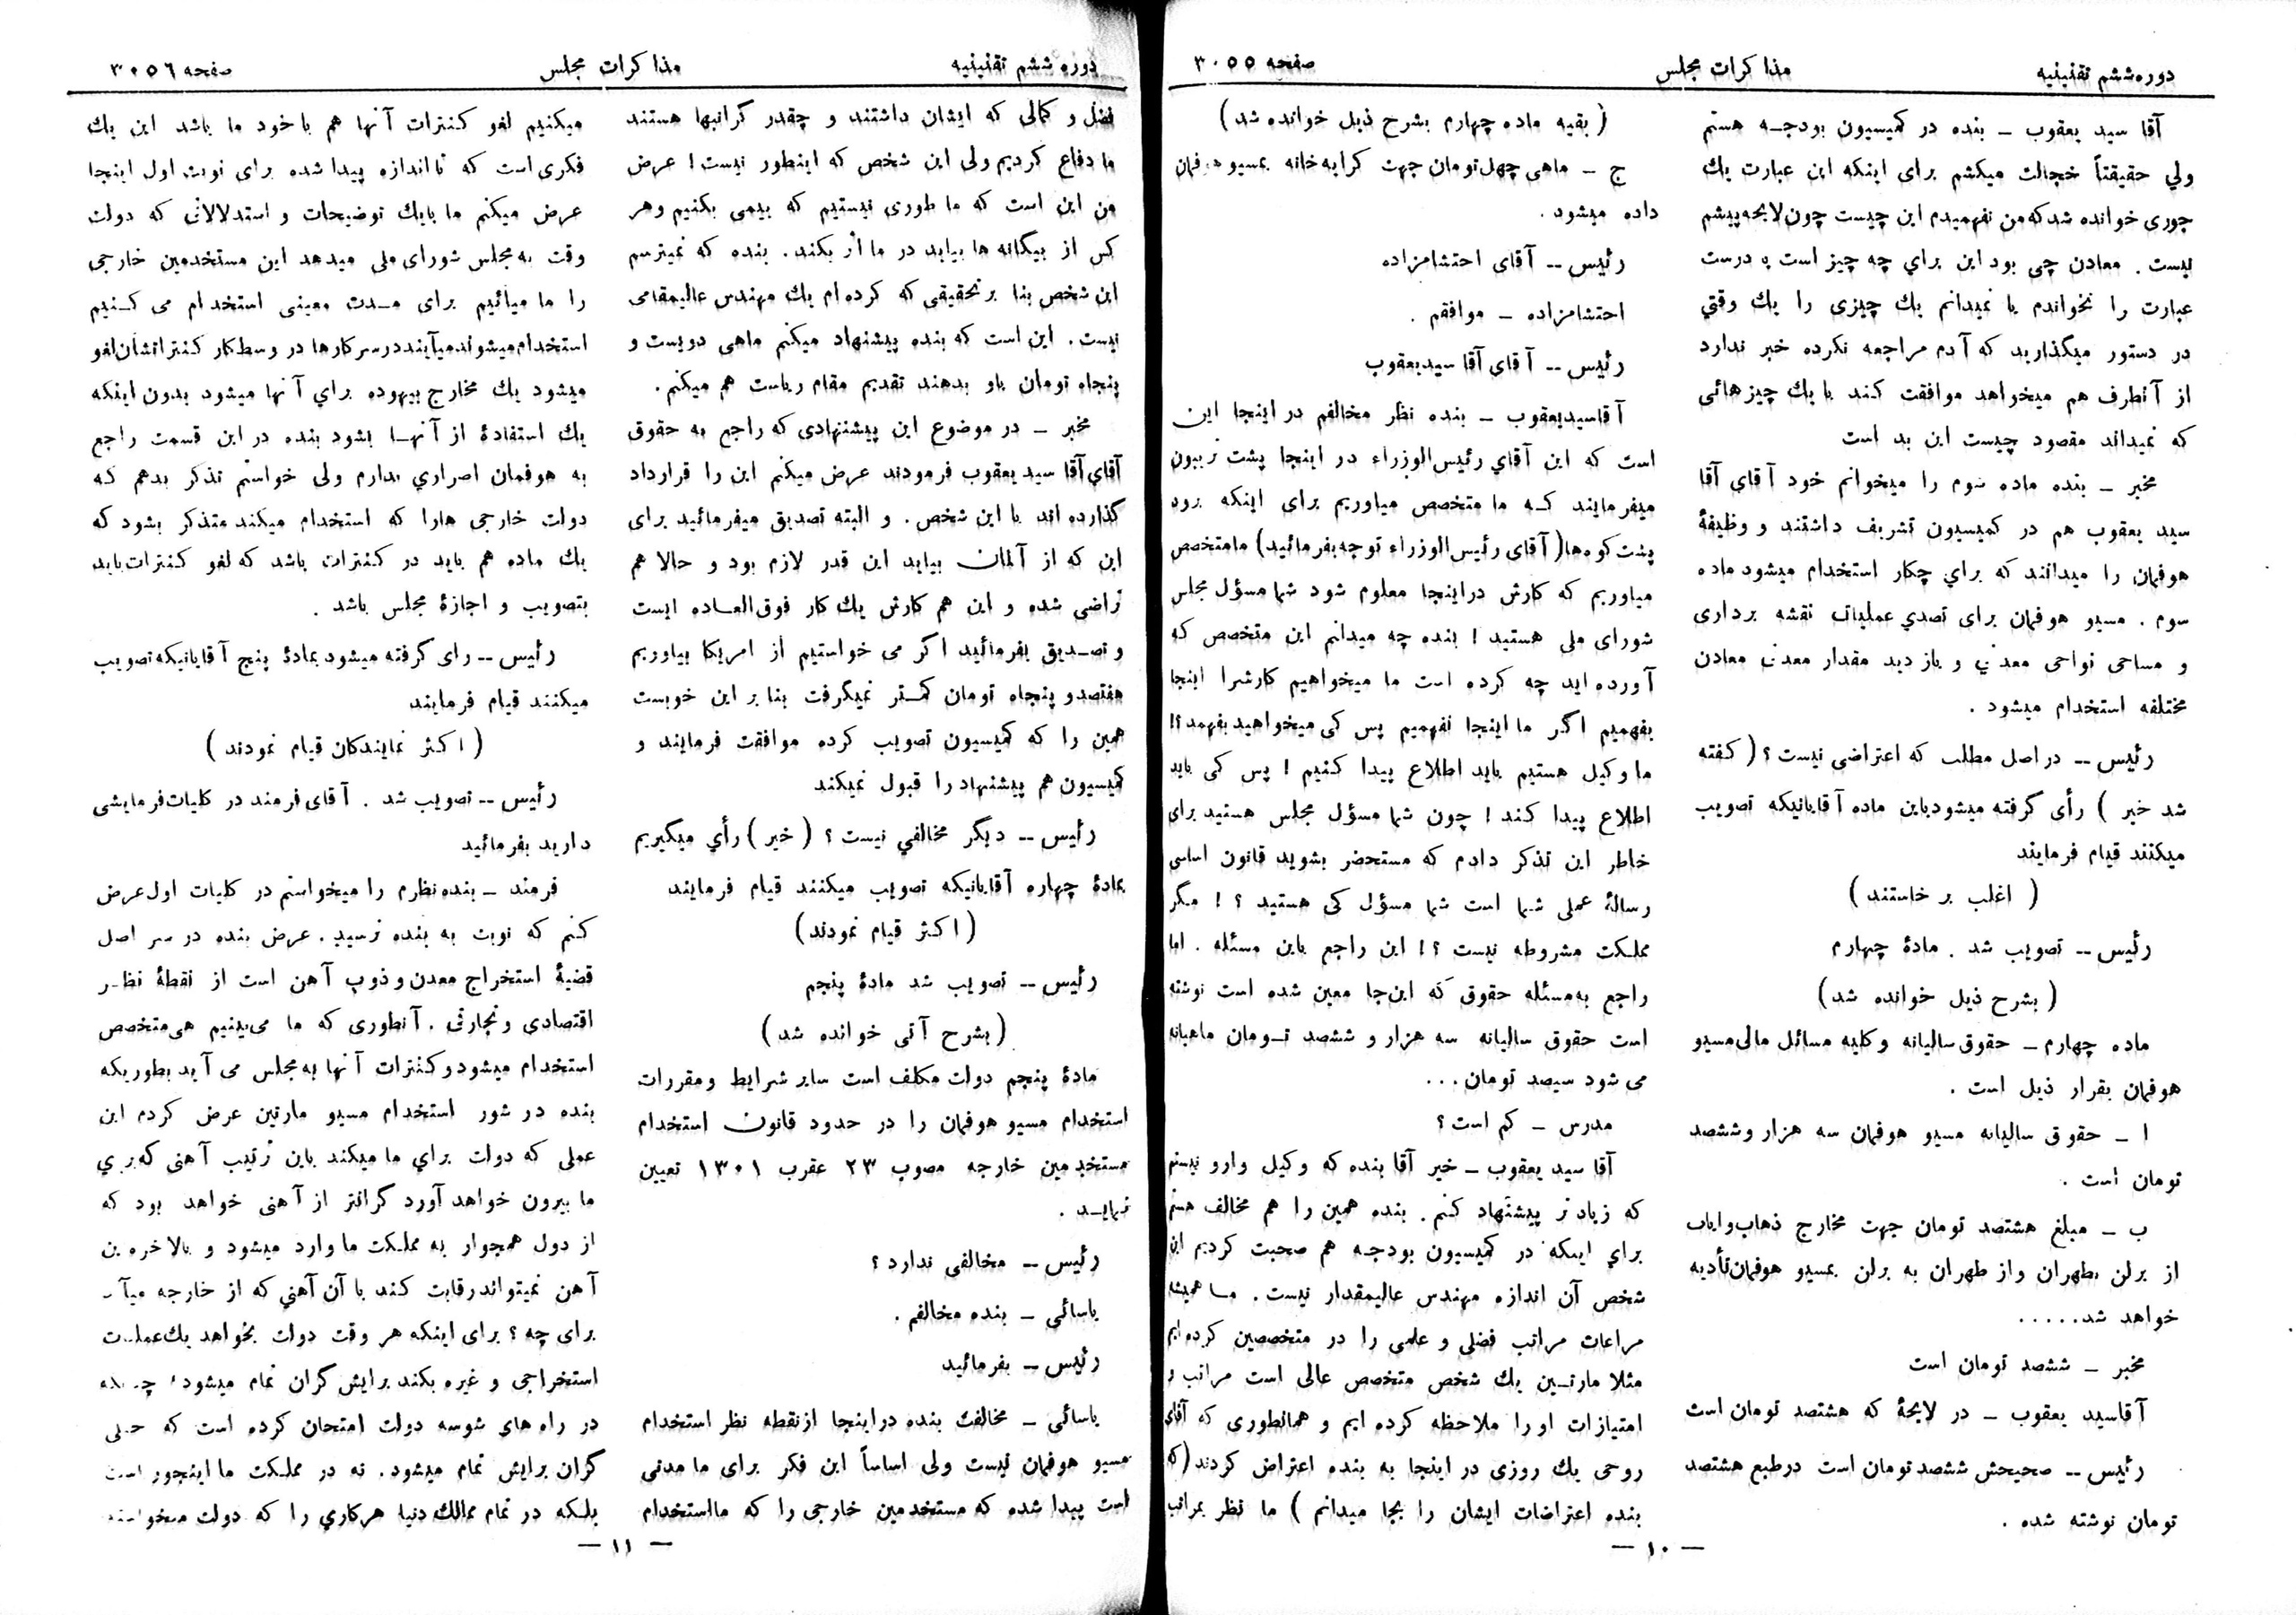 دوره ششم تقنینیه
مذاکرات مجلس
صفحه ۳۰۵۵
آقا سید یعقوب ــ بنده در کمیسیون بودجه هستم
ولی حقیقتاً خجالت میکشم برای اینکه این عبارت یك
جوری خوانده شد که من نفهمیدم این چیست چون لایحه پیشم
نیست . معادن چی بود این برای چه چیز است یا درست
عبارت را نخواندم یا نمیدانم یك چیزی را یك وقتی
در دستور میگذارید که آدم مراجعه نکرده خبر ندارد
از آنطرف هم میخواهد موافقت کند با یك چیز هائی
که نمیداند مقصود چیست این بد است
مخبر ــ بنده ماده سوم را میخوانم خود آقای آقا
سید یعقوب هم در کمیسیون تشریف داشتند و وظیفهٔ
هوفمان را میدانند که برای چکار استخدام میشود ماده
سوم . مسیو هوفمان برای تصدی عملیات نقشه برداری
و مساحی نواحی معدنی و بازدید مقدار معدنی معادن
مختلفه استخدام میشود .
رئیس ــ در اصل مطلب که اعتراضی نیست ؟ ( گفته
شد خیر ) رأی گرفته میشود باین ماده آقایانیکه تصویب
میکنند قیام فرمایند
( اغلب بر خاستند )
رئیس ــ تصویب شد . مادهٔ چهارم
( بشرح ذیل خوانده شد )
ماده چهارم ــ حقوق سالیانه و کلیه مسائل مالی مسیو
هوفمان بقرار ذیل است .
ا ــ حقوق سالیانه مسیو هوفمان سه هزار و ششصد
تومان است .
ب ــ مبلغ هشتصد تومان جهت مخارج ذهاب و ایاب
از برلن بطهران و از طهران به برلن بمسیو هوفمان تأدیه
خواهد شد.....
مخبر ــ ششصد تومان است
آقا سید یعقوب ــ در لایحهٔ که هشتصد تومان است
رئیس ــ صحیحش ششصد تومان است در طبع هشتصد
تومان نوشته شده .
( بقیه ماده چهارم بشرح ذیل خوانده شد )
ج ــ ماهی چهل تومان جهت کرایه خانه بمسیو هوفمان
داده میشود .
رئیس ــ آقای احتشامزاده
احتشامزاده ــ موافقم .
رئیس ــ آقای آقا سید یعقوب
آقا سید یعقوب ــ بنده نظر مخالفم در اینجا این
است که این آقای رئیس الوزراء در اینجا پشت تریبون
میفرمایند که ما متخصص میاوریم برای اینکه برود
پشت کوه‌ها ( آقای رئیس الوزراء توجه بفرمائید ) ما متخصص
میاوریم که کارش در اینجا معلوم شود شما مسؤل مجلس
شورای ملی هستید ! بنده چه میدانم این متخصص که
آورده اید چه کرده است ما میخواهیم کارش را اینجا
بفهمیم اگر ما اینجا نفهمیم پس کی میخواهید بفهمد ؟!
ما وکیل هستیم باید اطلاع پیدا کنیم ! پس کی باید
اطلاع پیدا کند ! چون شما مسؤل مجلس هستید برای
خاطر این تذکر دادم که مستحضر بشوید قانون اساسی
رسالهٔ عملی شما است شما مسؤل کی هستید ؟ ! مگر
مملکت مشروطه نیست ؟! این راجع باین مسئله . اما
راجع به مسئله حقوق که این جا معین شده است نوشته
است حقوق سالیانه سه هزار و ششصد تومان ماهیانه
می شود سیصد تومان ...
مدرس ــ کم است ؟
آقا سید یعقوب ــ خیر آقا بنده که وکیل وارو نیستم
که زیاد تر پیشنهاد کنم . بنده همین را هم مخالف هستم
برای اینکه در کمیسیون بودجه هم صحبت کردیم این
شخص آن اندازه مهندس عالیمقدار نیست . ما همیشه
مراعات مراتب فضلی و علمی را در متخصصین کرده‌ایم
مثلا مارتین یك شخص متخصص عالی است مراتب و
امتیازات او را ملاحظه کرده ایم و همانطوری که آقای
روحی یك روزی در اینجا به بنده اعتراض کردند ( که
بنده اعتراضات ایشان را بجا میدانم ) ما نظر بمراتب
ــ ۱۰ ــ
دوره ششم تقنینیه
مذاکرات مجلس
صفحه ۳۰۵۶
فضل و کمالی که ایشان داشتند و چقدر گرانبها هستند
ما دفاع کردیم ولی این شخص که اینطور نیست ! عرض
من این است که ما طوری نیستیم که بیمی بکنیم و هر
کس از بیگانه ها بیاید در ما اثر بکند . بنده که نمیترسم
این شخص بنا بر تحقیقی که کرده ام یك مهندس عالیمقامی
نیست . این است که بنده پیشنهاد میکنم ماهی دویست و
پنجاه تومان باو بدهند تقدیم مقام ریاست هم میکنم .
مخبر ــ در موضوع این پیشنهادی که راجع به حقوق
آقای آقا سید یعقوب فرمودند عرض میکنم این را قرارداد
گذارده اند با این شخص . و البته تصدیق میفرمائید برای
این که از آلمان بیاید این قدر لازم بود و حالا هم
راضی شده و این هم کارش یك کار فوق العاده ایست
و تصدیق بفرمائید اگر می خواستیم از امریکا بیاوریم
هفتصد و پنجاه تومان کمتر نمیگرفت بنا بر این خوبست
همین را که کمیسیون تصویب کرده موافقت فرمایند و
کمیسیون هم پیشنهاد را قبول نمیکند
رئیس ــ دیگر مخالفی نیست ؟ ( خیر ) رأی میگیریم
بمادهٔ چهارم آقایانیکه تصویب میکنند قیام فرمایند
( اکثر قیام نمودند )
رئیس ــ تصویب شد مادهٔ پنجم
( بشرح آتی خوانده شد )
مادهٔ پنجم دولت مکلف است سایر شرایط و مقررات
استخدام مسیو هوفمان را در حدود قانون استخدام
مستخدمین خارجه مصوب ۲۳ عقرب ۱۳۰۱ تعیین
نماید .
رئیس ــ مخالفی ندارد ؟
یاسائی ــ بنده مخالفم .
رئیس ــ بفرمائید
یاسائی ــ مخالفت بنده در اینجا از نقطه نظر استخدام
مسیو هوفمان نیست ولی اساساً این فکر برای ما مدتی
است پیدا شده که مستخدمین خارجی را که ما استخدام
میکنیم لغو کنترات آنها هم با خود ما باشد این یك
فکری است که تا اندازه پیدا شده برای نوبت اول اینجا
عرض میکنم ما با یك توضیحات و استدلالاتی که دولت
وقت به مجلس شورای ملی میدهد این مستخدمین خارجی
را ما میائیم برای مدت معینی استخدام می کنیم
استخدام میشوند میآیند در سر کارها در وسط کار کنتراتشان لغو
میشود یك مخارج بیهوده برای آنها میشود بدون اینکه
یك استفادهٔ از آنها بشود بنده در این قسمت راجع
به هوفمان اصراری ندارم ولی خواستم تذکر بدهم که
دولت خارجی هارا که استخدام میکند متذکر بشود که
یك ماده هم باید در کنترات باشد که لغو کنترات باید
بتصویب و اجازهٔ مجلس باشد .
رئیس ــ رای گرفته میشود بمادهٔ پنج آقایانیکه تصویب
میکنند قیام فرمایند
( اکثر نمایندکان قیام نمودند )
رئیس ــ تصویب شد . آقای فرمند در کلیات فرمایشی
دارید بفرمائید
فرمند ــ بنده نظرم را میخواستم در کلیات اول عرض
کنم که نوبت به بنده نرسید . عرض بنده در سر اصل
قضیهٔ استخراج معدن و ذوب آهن است از نقطهٔ نظر
اقتصادی و تجارتی . آنطوری که ما می‌بینیم هی متخصص
استخدام میشود و کنترات آنها به مجلس می آید بطوریکه
بنده در شور استخدام مسیو مارتین عرض کردم این
عملی که دولت برای ما میکند باین ترتیب آهنی که برای
ما بیرون خواهد آورد گرانتر از آهنی خواهد بود که
از دول همجوار به مملکت ما وارد میشود و بالاخره این
آهن نمیتواند رقابت کند با آن آهنی که از خارجه
برای چه ؟ برای اینکه هر وقت دولت بخواهد یك عملیات
استخراجی و غیره بکند برایش گران تمام میشود
در راه های شوسه دولت امتحان کرده است که خیلی
گران برایش تمام میشود . نه در مملکت ما اینجور است
بلکه در تمام ممالك دنیا هر کاری را که دولت
ــ ۱۱ ــ